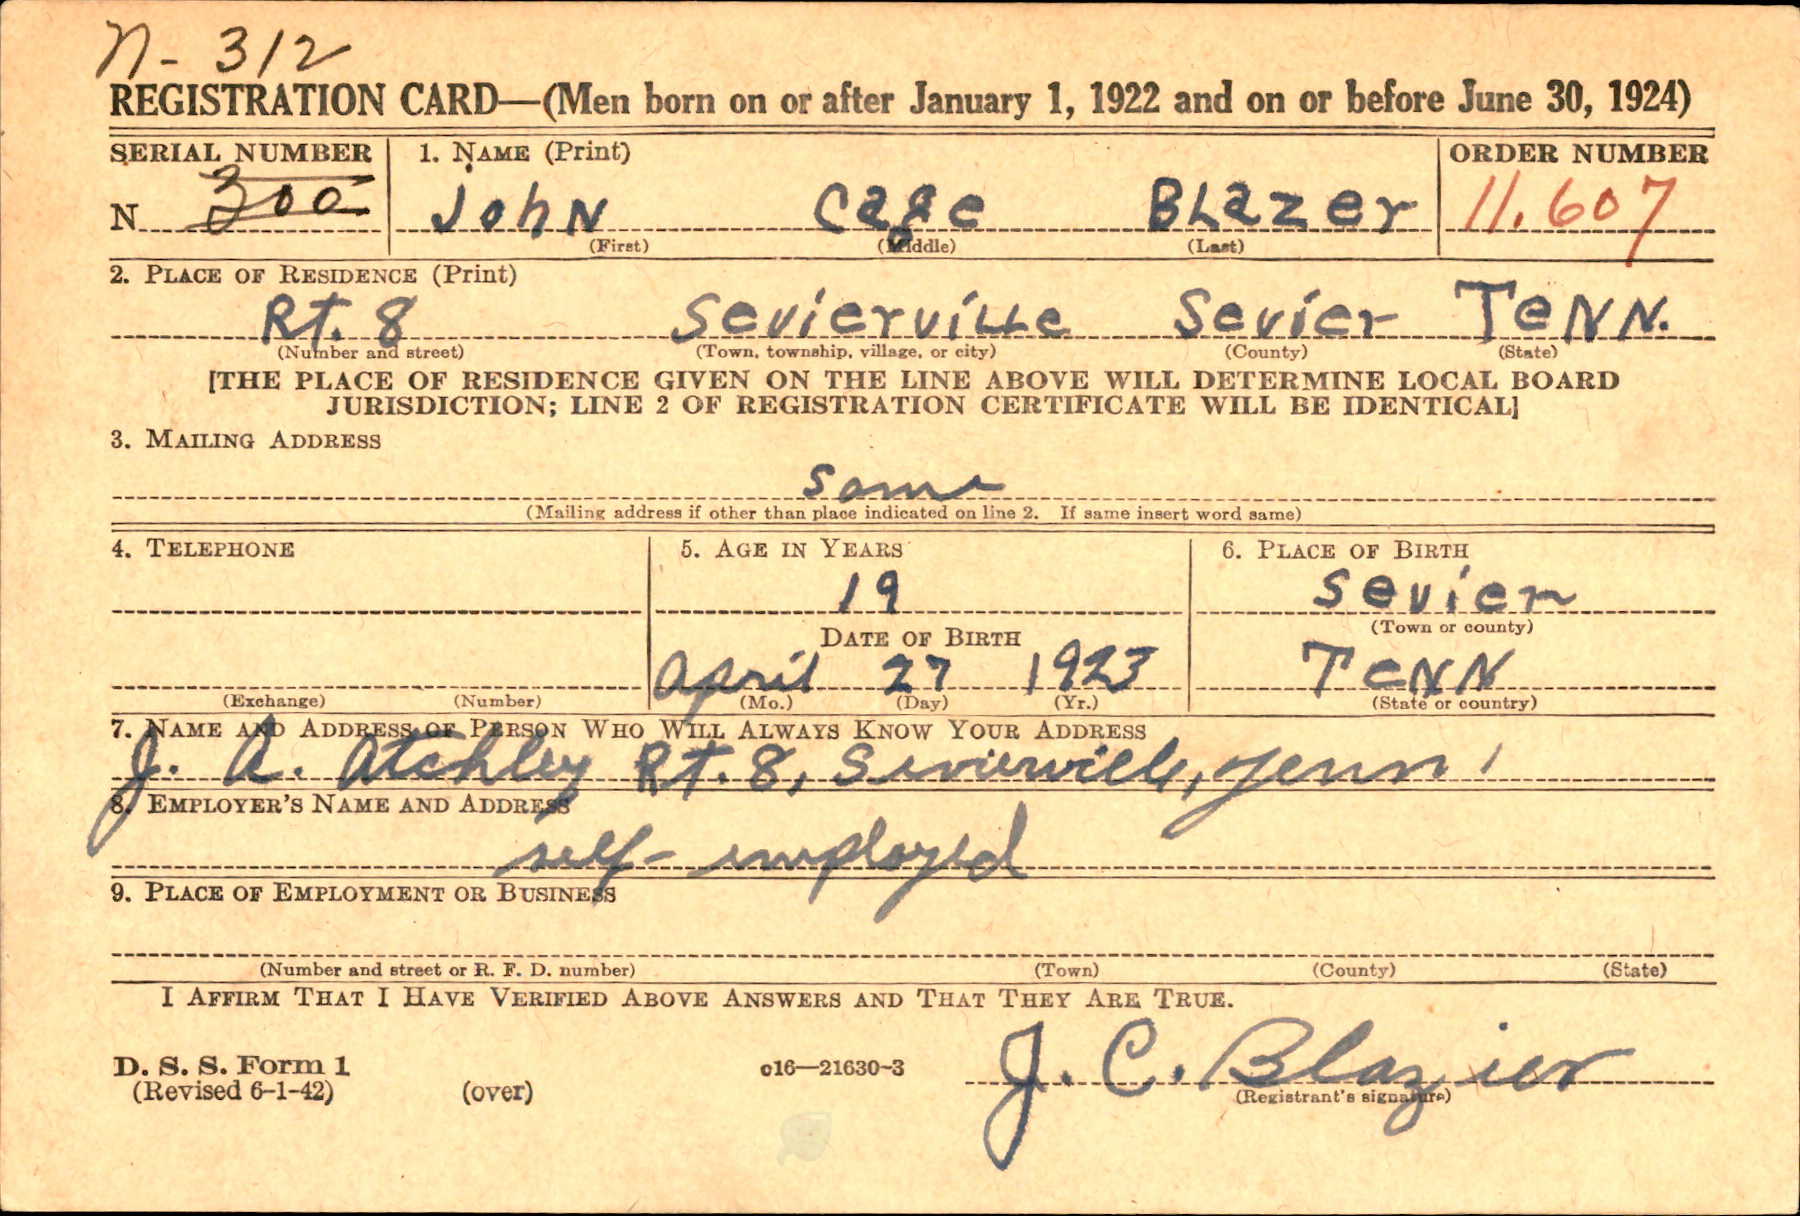 N- 312
REGISTRATION CARD—(Men born on or after January 1, 1922 and on or before June 30, 1924)
SERIAL NUMBER 1. NAME (Print) ORDER NUMBER
N 300 John Cage BLazer 11.607
(First) (Middle) (Last)
2. PLACE OF RESIDENCE (Print)
Rt. 8 Sevierville Sevier TENN.
(Number and street) (Town, township, village, or city) (County) (State)
[THE PLACE OF RESIDENCE GIVEN ON THE LINE ABOVE WILL DETERMINE LOCAL BOARD
JURISDICTION; LINE 2 OF REGISTRATION CERTIFICATE WILL BE IDENTICAL]
3. MAILING ADDRESS
Same
(Mailing address if other than place indicated on line 2. If same insert word same)
4. TELEPHONE 5. AGE IN YEARS 6. PLACE OF BIRTH
19 Sevier
(Town or county)
DATE OF BIRTH
April 27 1923 TENN
(Exchange) (Number) (Mo.) (Day) (Yr.) (State or country)
7. NAME AND ADDRESS OF PERSON WHO WILL ALWAYS KNOW YOUR ADDRESS
J. A. Atchley Rt. 8, Sevierville, Tenn.
8. EMPLOYER'S NAME AND ADDRESS
self-employed
9. PLACE OF EMPLOYMENT OR BUSINESS
(Number and street or R. F. D. number) (Town) (County) (State)
I AFFIRM THAT I HAVE VERIFIED ABOVE ANSWERS AND THAT THEY ARE TRUE.
D. S. S. Form 1 c16—21630-3 J. C. Blazier
(Revised 6-1-42) (over) (Registrant's signature)